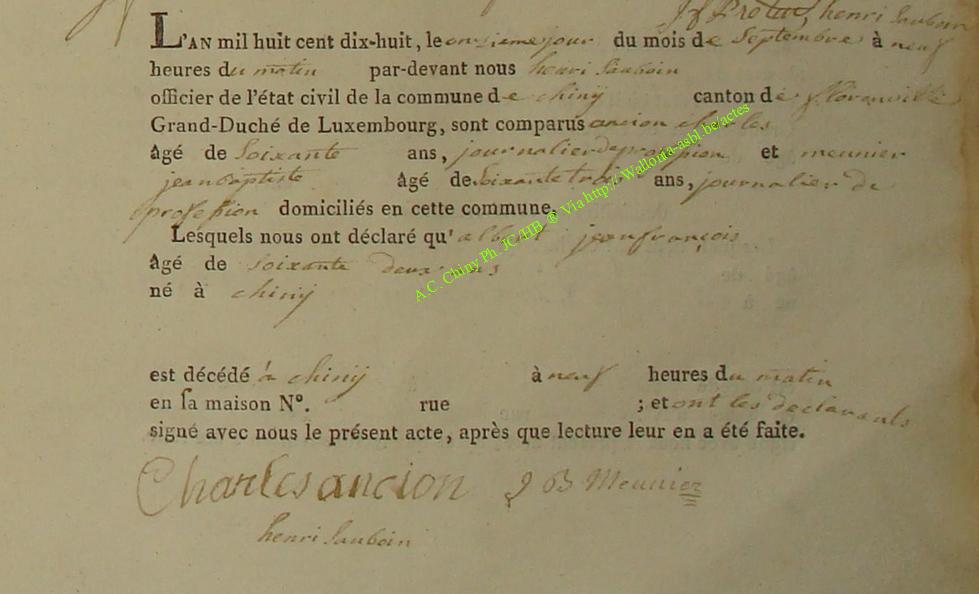 J f Protin, henri Sauboin
L'AN mil huit cent dix-huit, le onsieme jour du mois de Septembre à neuf
heures du matin par-devant nous henri Sauboin
officier de l'état civil de la commune de chiny canton de florenville
Grand-Duché de Luxembourg, sont comparus ancion charles
âgé de Soixante ans, journalier de profession et meunier
jean baptiste âgé de Soixante trois ans, journalier de
profession domiciliés en cette commune,
Lesquels nous ont déclaré qu' albert jean françois
âgé de soixante deux ans
né à chiny
A.C. Chiny Ph. JC.HB. ® Via http://Wallonia-asbl.be/actes
est décédé à chiny à neuf heures du matin
en sa maison N°. rue ; et ont les declarants
signé avec nous le présent acte, après que lecture leur en a été faite.
Charles ancion J B Meunier
henri Sauboin